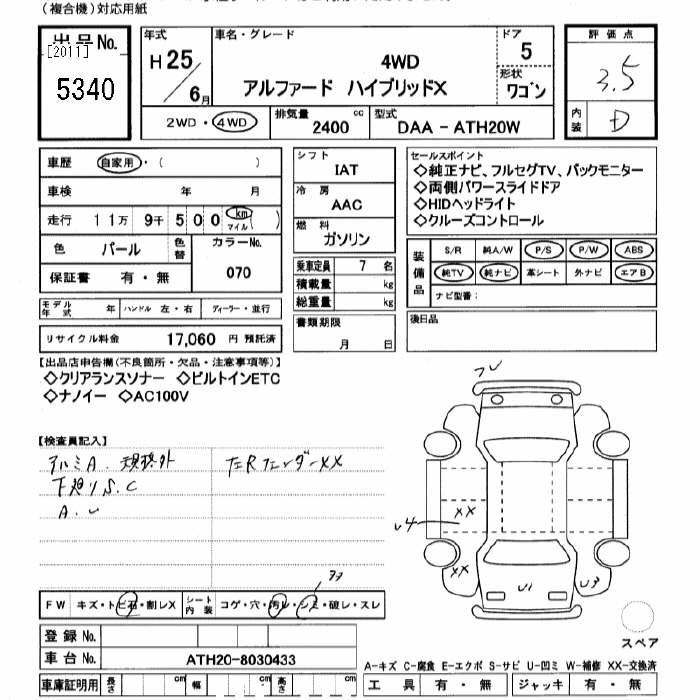 (複合機)対応用紙
出品No.
[2011]
5340
年式
H25/6月
車名・グレード
4WD
アルファード ハイブリッドX
ドア
5
形状
ワゴン
評価点
3.5
内装
D
2WD・4WD
排気量
2400 cc
型式
DAA - ATH20W
車歴 自家用・( )
車検 年 月
走行 11万 9千 500 km マイル ( )
色 パール 色替 カラーNo. 070
保証書 有・無
シフト
IAT
冷房
AAC
燃料
ガソリン
乗車定員 7 名
積載量 kg
総重量 kg
セールスポイント
◇純正ナビ、フルセグTV、バックモニター
◇両側パワースライドドア
◇HIDヘッドライト
◇クルーズコントロール
装備品
S/R 純人/W P/S P/W ABS
純TV 純ナビ 革シート 外ナビ エアB
ナビ型番:
モデル年式 年 ハンドル 左・右 ディーラー・並行
リサイクル料金 17,060 円 預託済
書類期限
月 日
後日品
【出品店申告欄(不良箇所・欠品・注意事項等)】
◇クリアランスソナー ◇ビルトインETC
◇ナノイー ◇AC100V
【検査員記入】
アルミA. 規格外 左Rフェンダーxx
下廻りS.C
A.U
FW キズ・トビ石・割レX シート内装 コゲ・穴・汚レ・シミ・破レ・スレ
登録No.
車台No. ATH20-8030433
車庫証明用 長さ cm 幅 cm 高さ cm
U4
xx
xx
U1
U3
スペア
A-キズ C-腐食 E-エクボ S-サビ U-凹ミ W-補修 XX-交換済
工具 有・無 ジャッキ 有・無